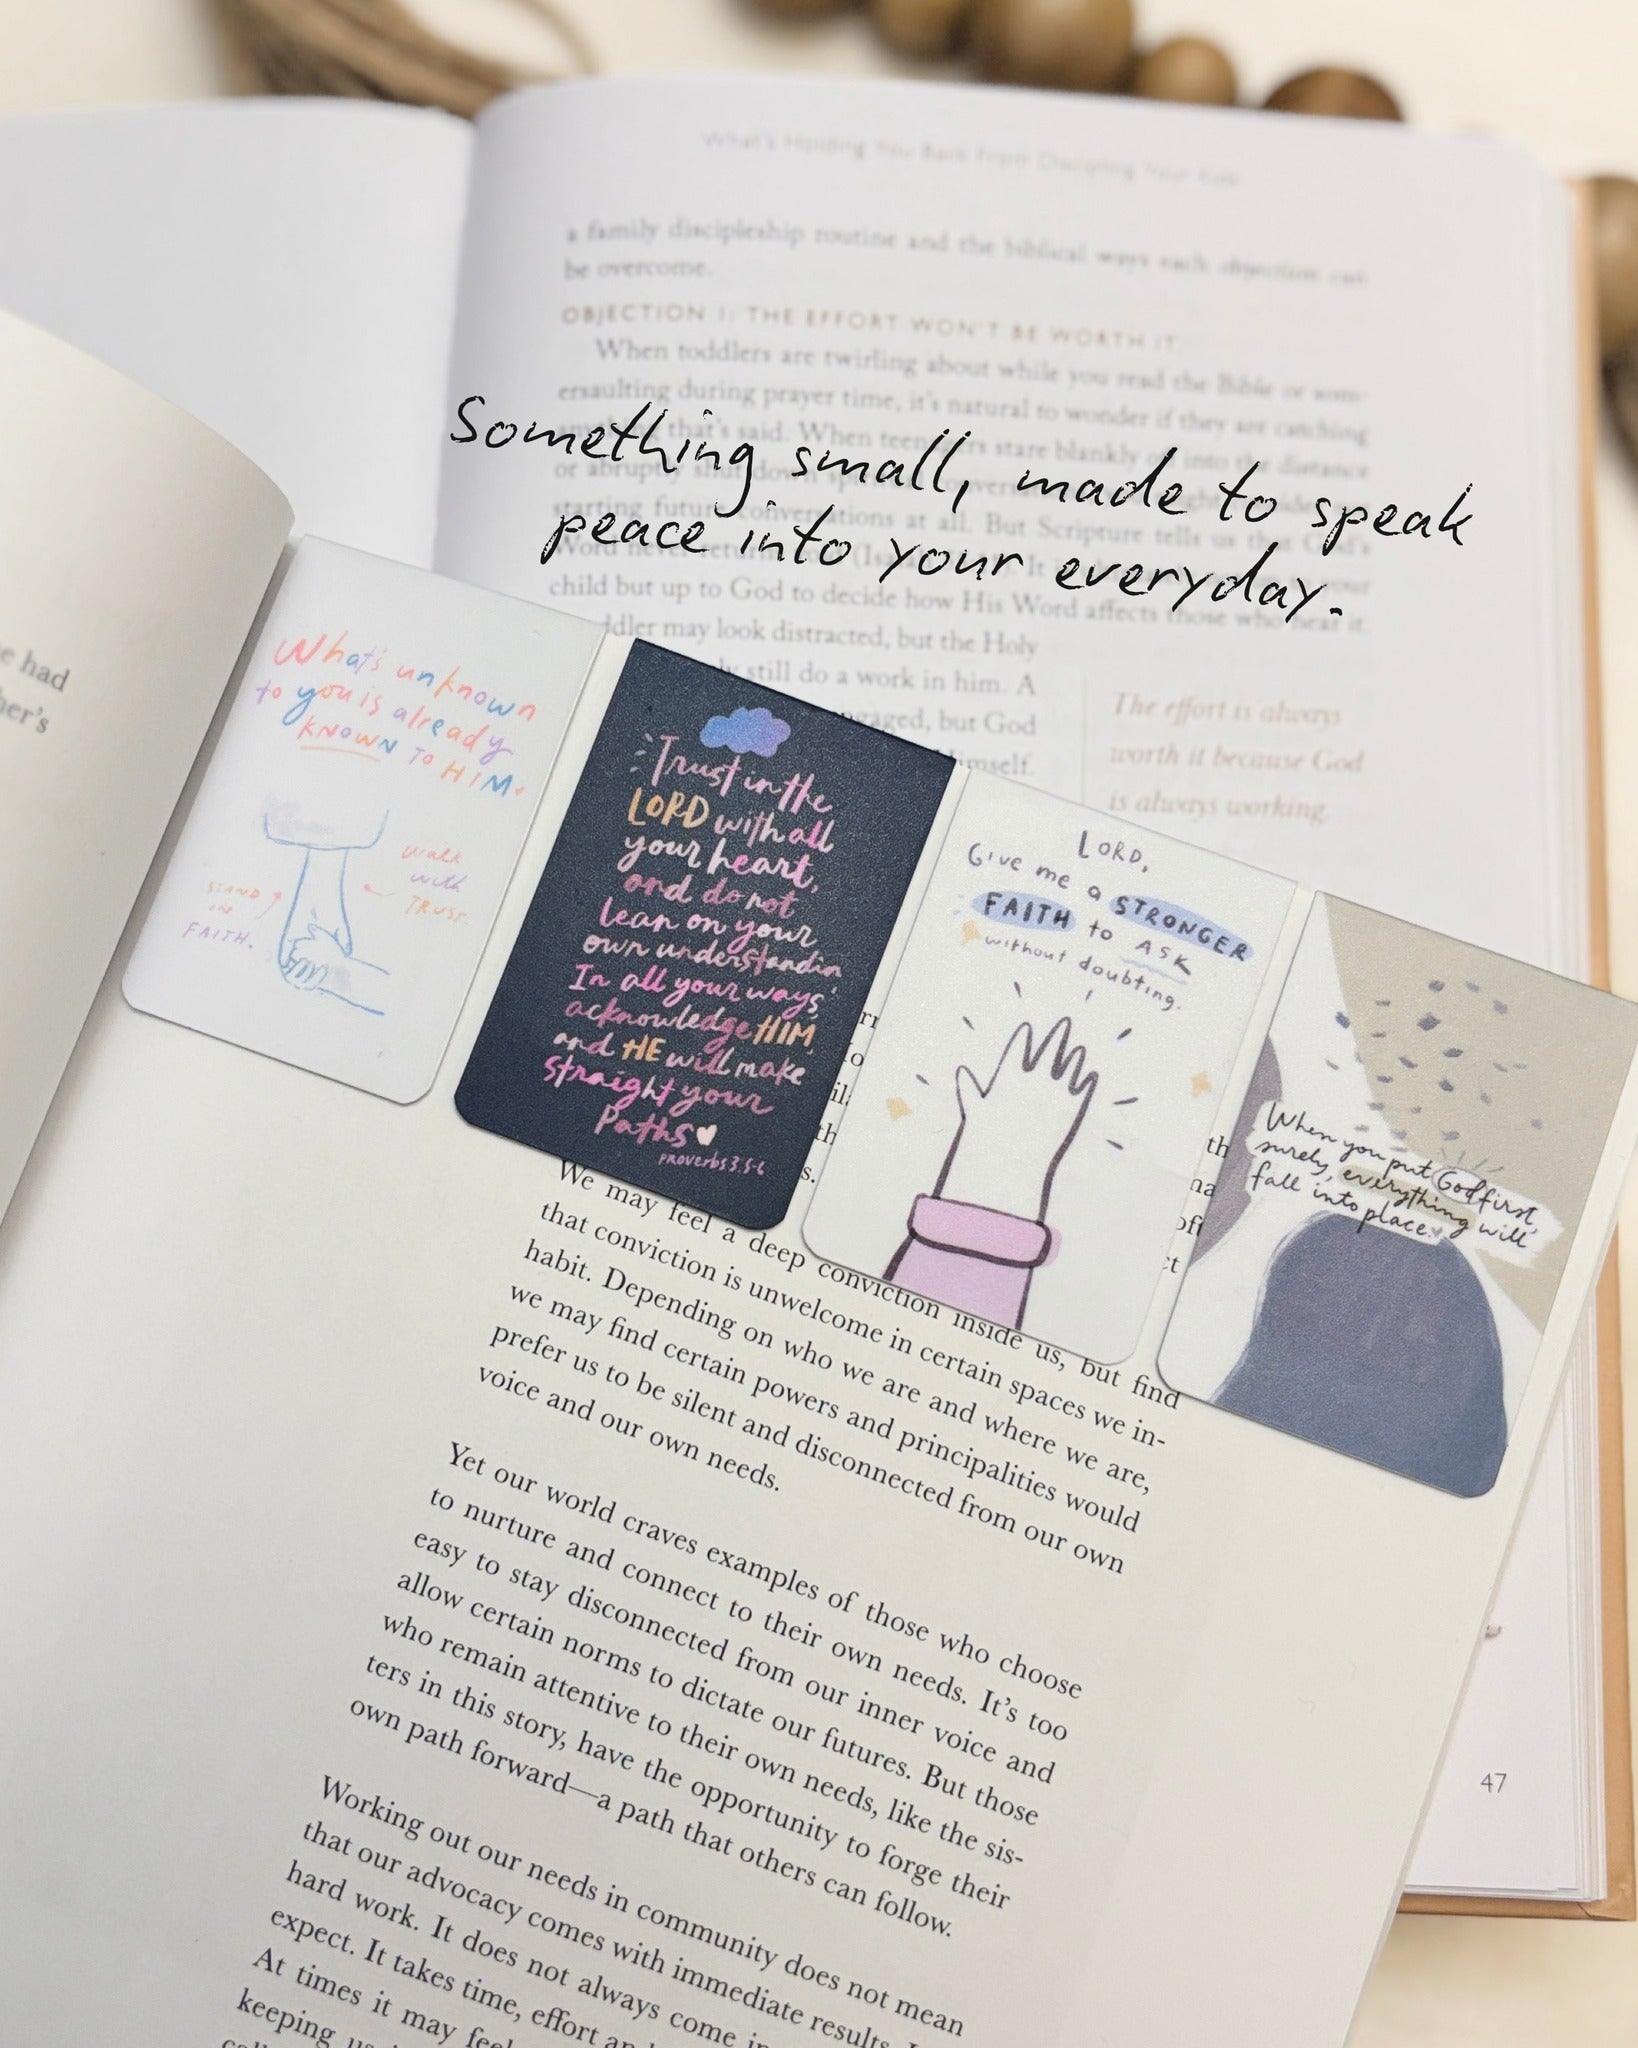 What's Holding You Back From Discipling Your Kids
a family discipleship routine and the biblical ways each objection can
be overcome.
OBJECTION 1: THE EFFORT WON'T BE WORTH IT
When toddlers are twirling about while you read the Bible or som-
ersaulting during prayer time, it's natural to wonder if they are catching
that's said. When teenagers stare blankly into the distance
or abruptly shut down
starting future conversations at all. But Scripture tells us that God's
Word never
child but up to God to decide how His Word affects those who hear it.
may look distracted, but the Holy
still do a work in him. A
but God
The effort is always
worth it because God
is always working.
Something small, made to speak
peace into your everyday.
e had
her's
What's unknown
to you is already
KNOWN TO HIM.
STAND
IN
FAITH.
WALK
with
TRUST.
Trust in the
LORD with all
your heart,
and do not
lean on your
own understandin
In all your ways,
acknowledge HIM,
and HE will make
straight your
Paths
Proverbs 3:5-6
LORD,
GIVE me a STRONGER
FAITH to ASK
without doubting.
When you put God first,
surely, everything will
fall into place.
We may feel a deep conviction inside us, but find
that conviction is unwelcome in certain spaces we in-
habit. Depending on who we are and where we are,
we may find certain powers and principalities would
prefer us to be silent and disconnected from our own
voice and our own needs.
Yet our world craves examples of those who choose
to nurture and connect to their own needs. It's too
easy to stay disconnected from our inner voice and
allow certain norms to dictate our futures. But those
who remain attentive to their own needs, like the sis-
ters in this story, have the opportunity to forge their
own path forward—a path that others can follow.
Working out our needs in community does not mean
that our advocacy comes with immediate results.
hard work. It does not always come
expect. It takes time, effort
At times it may feel
keeping us
47